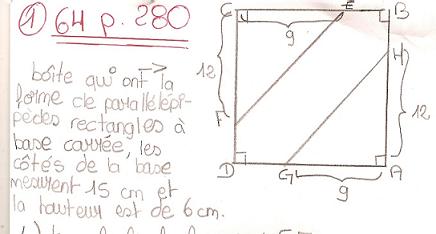 ① 64 p. 280
boîte qui ont la
forme de parallélépi-
pèdes rectangles à
base carrée, les
côtés de la base
mesurent 15 cm et
la hauteur est de 6 cm.
C E B
9
H
12
12
F
D G A
9